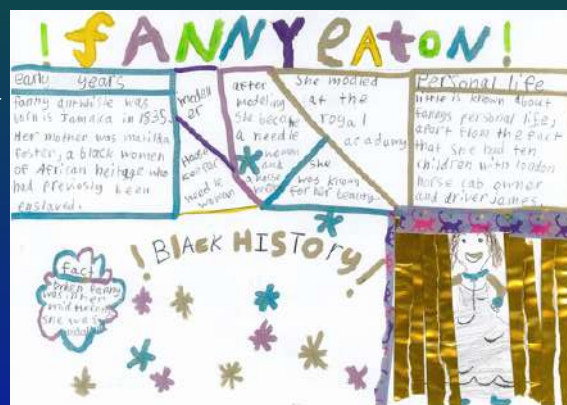 ! fANNY eaton!
early years
fanny antwistle was
born is Jamaica in 1835.
Her mother was matilda
foster, a black women
of African heitage who
had previosly been
enslaved.
modell
er
House
keeper
needle
woman
after
modeling
she became
a needle
woman
and
a house
She modled
at the
royal
academy
she
was known
for her beauty
Personal life
little is known about
fannys personal life,
apart from the fact
that she had ten
children with london
horse cab owner
and driver James.
! BLAcK HISTory!
fact
When fanny
was in her
mid thirtys
she was